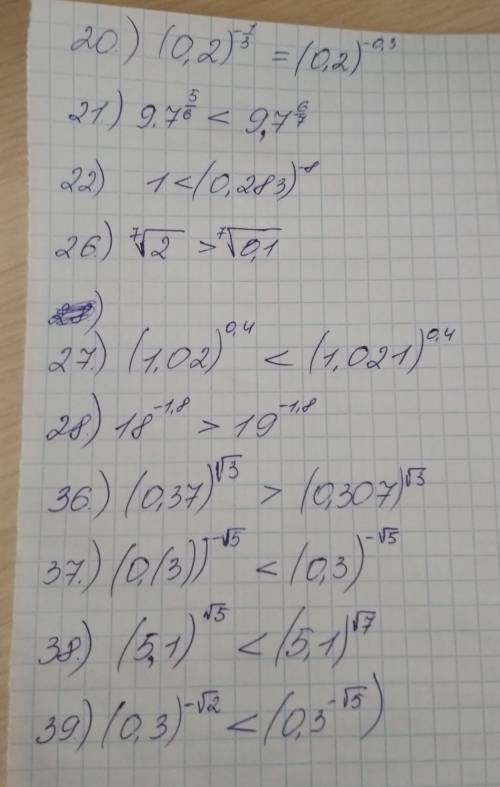 20.) (0,2)^{-1/3} = (0,2)^{-0,3}
21) 9.7^{5/6} < 9,7^{6/7}
22) 1 < (0,283)^{-8}
26.) ⁷√2 > ⁷√0,1
)
27.) (1,02)^{0,4} < (1,021)^{0,4}
28.) 18^{-1,8} > 19^{-1,8}
36.) (0,37)^{√3} > (0,307)^{√3}
37.) (0,(3))^{-√5} < (0,3)^{-√5}
38.) (5,1)^{√5} < (5,1)^{√7}
39) (0,3)^{-√2} < (0,3^{-√5})